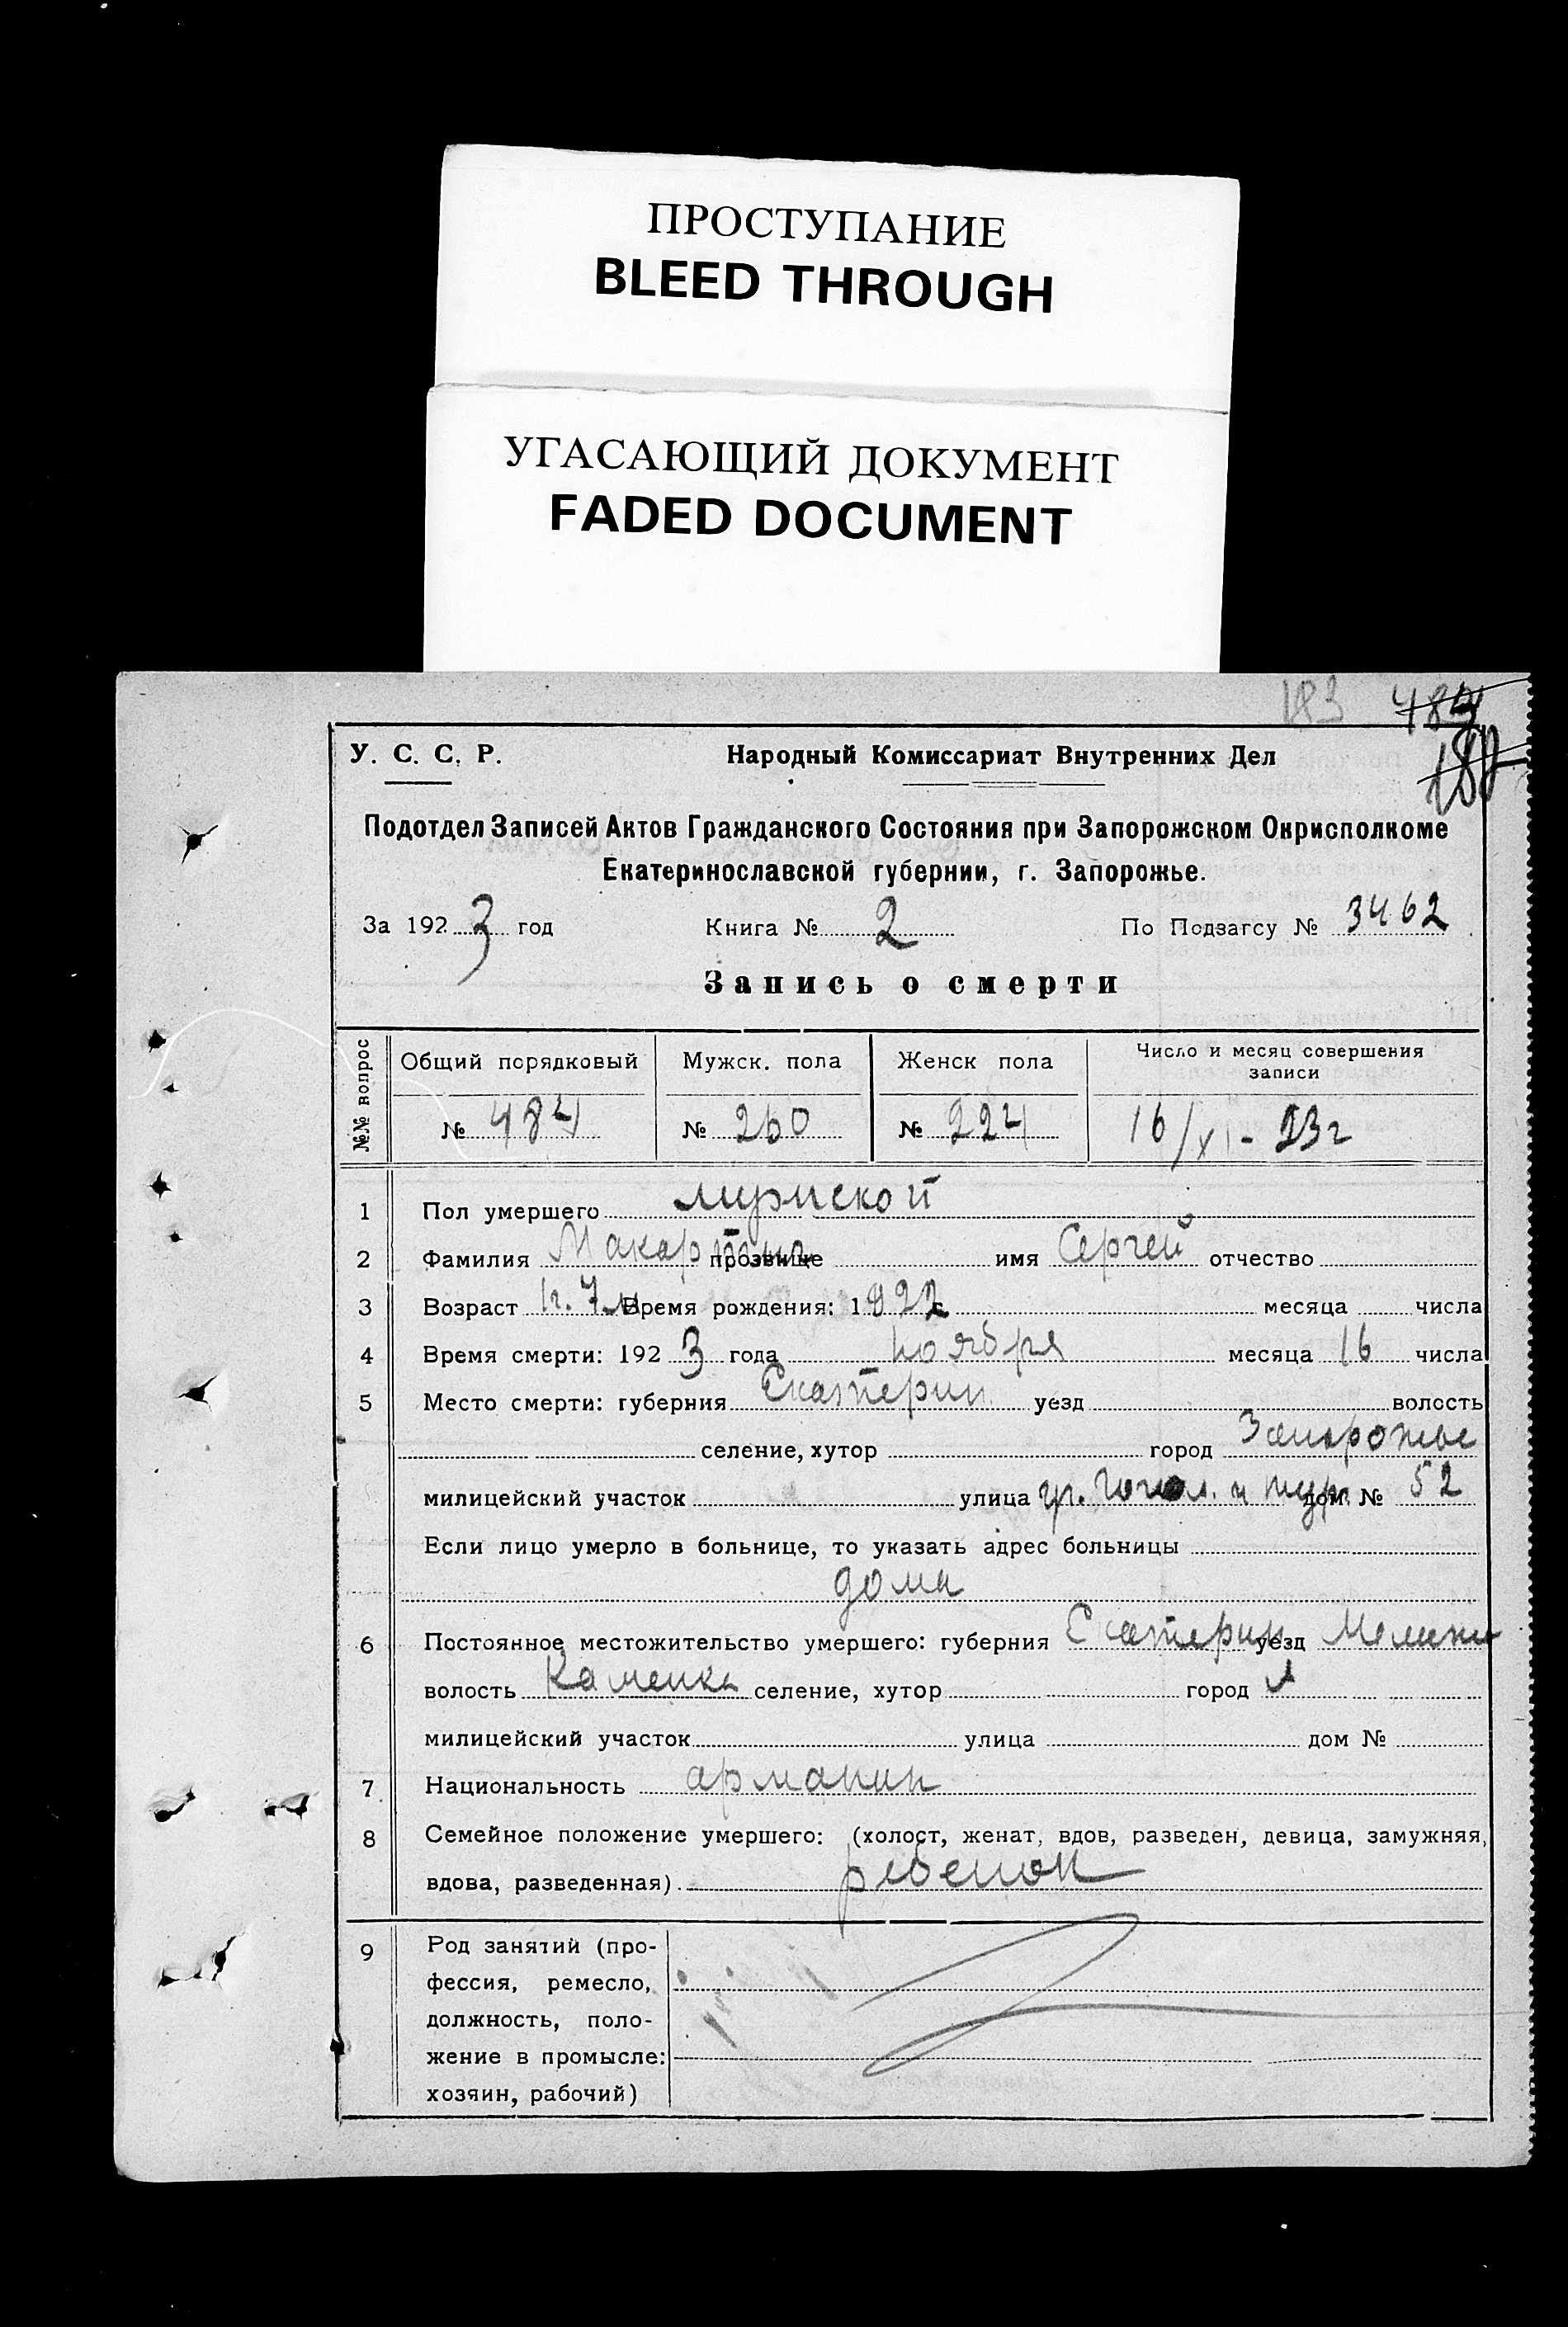 ПРОСТУПАНИЕ
BLEED THROUGH
УГАСАЮЩИЙ ДОКУМЕНТ
FADED DOCUMENT
183 484
У. С. С. Р. Народный Комиссариат Внутренних Дел
Подотдел Записей Актов Гражданского Состояния при Запорожском Окрисполкоме
Екатеринославской губернии, г. Запорожье.
За 1923 год Книга № 2 По Подзагсу № 3462
Запись о смерти
№№ вопрос Общий порядковый Мужск. пола Женск пола Число и месяц совершения записи
№ 484 № 260 № 224 16/XI - 23 г
1 Пол умершего мужской
2 Фамилия прозвище имя Сергей отчество
3 Возраст 1 г. 7 м. Время рождения: 1922 г. месяца числа
4 Время смерти: 1923 года ноября месяца 16 числа
5 Место смерти: губерния Екатерин уезд волость
селение, хутор город Запорожье
милицейский участок улица уг. Гогол. и дом № 52
Если лицо умерло в больнице, то указать адрес больницы
дома
6 Постоянное местожительство умершего: губерния Екатерин уезд
волость Каменка селение, хутор город
милицейский участок улица дом №
7 Национальность армянин
8 Семейное положение умершего: (холост, женат, вдов, разведен, девица, замужняя,
вдова, разведенная). ребенок
9 Род занятий (про-
фессия, ремесло,
должность, поло-
жение в промысле:
хозяин, рабочий)